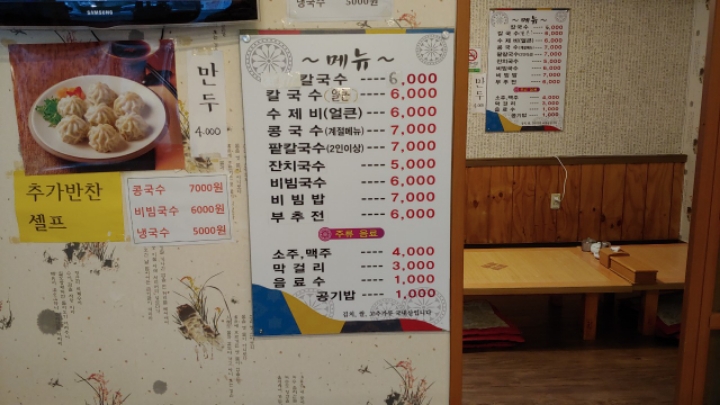 SAMSUNG
냉국수 5000원
만두
4,000
추가반찬
셀프
콩국수 7000원
비빔국수 6000원
냉국수 5000원
~메뉴~
칼국수 ---- 6,000
칼국수(얼큰) ---- 6,000
수제비(얼큰) ---- 6,000
콩국수(계절메뉴) ---- 7,000
팥칼국수(2인이상) ---- 7,000
잔치국수 ---- 5,000
비빔국수 ---- 6,000
비빔밥 ---- 7,000
부추전 ---- 6,000
주류 음료
소주,맥주 ---- 4,000
막걸리 ---- 3,000
음료수 ---- 1,000
공기밥 ---- 1,000
김치, 쌀, 고추가루 국내산입니다
~메뉴~
칼국수 ---- 6,000
수제비(얼큰) ---- 6,000
콩국수 ---- 7,000
팥칼국수 ---- 7,000
잔치국수 ---- 5,000
비빔국수 ---- 6,000
비빔밥 ---- 7,000
부추전 ---- 6,000
소주,맥주 ---- 4,000
막걸리 ---- 3,000
음료수 ---- 1,000
공기밥 ---- 1,000
만두